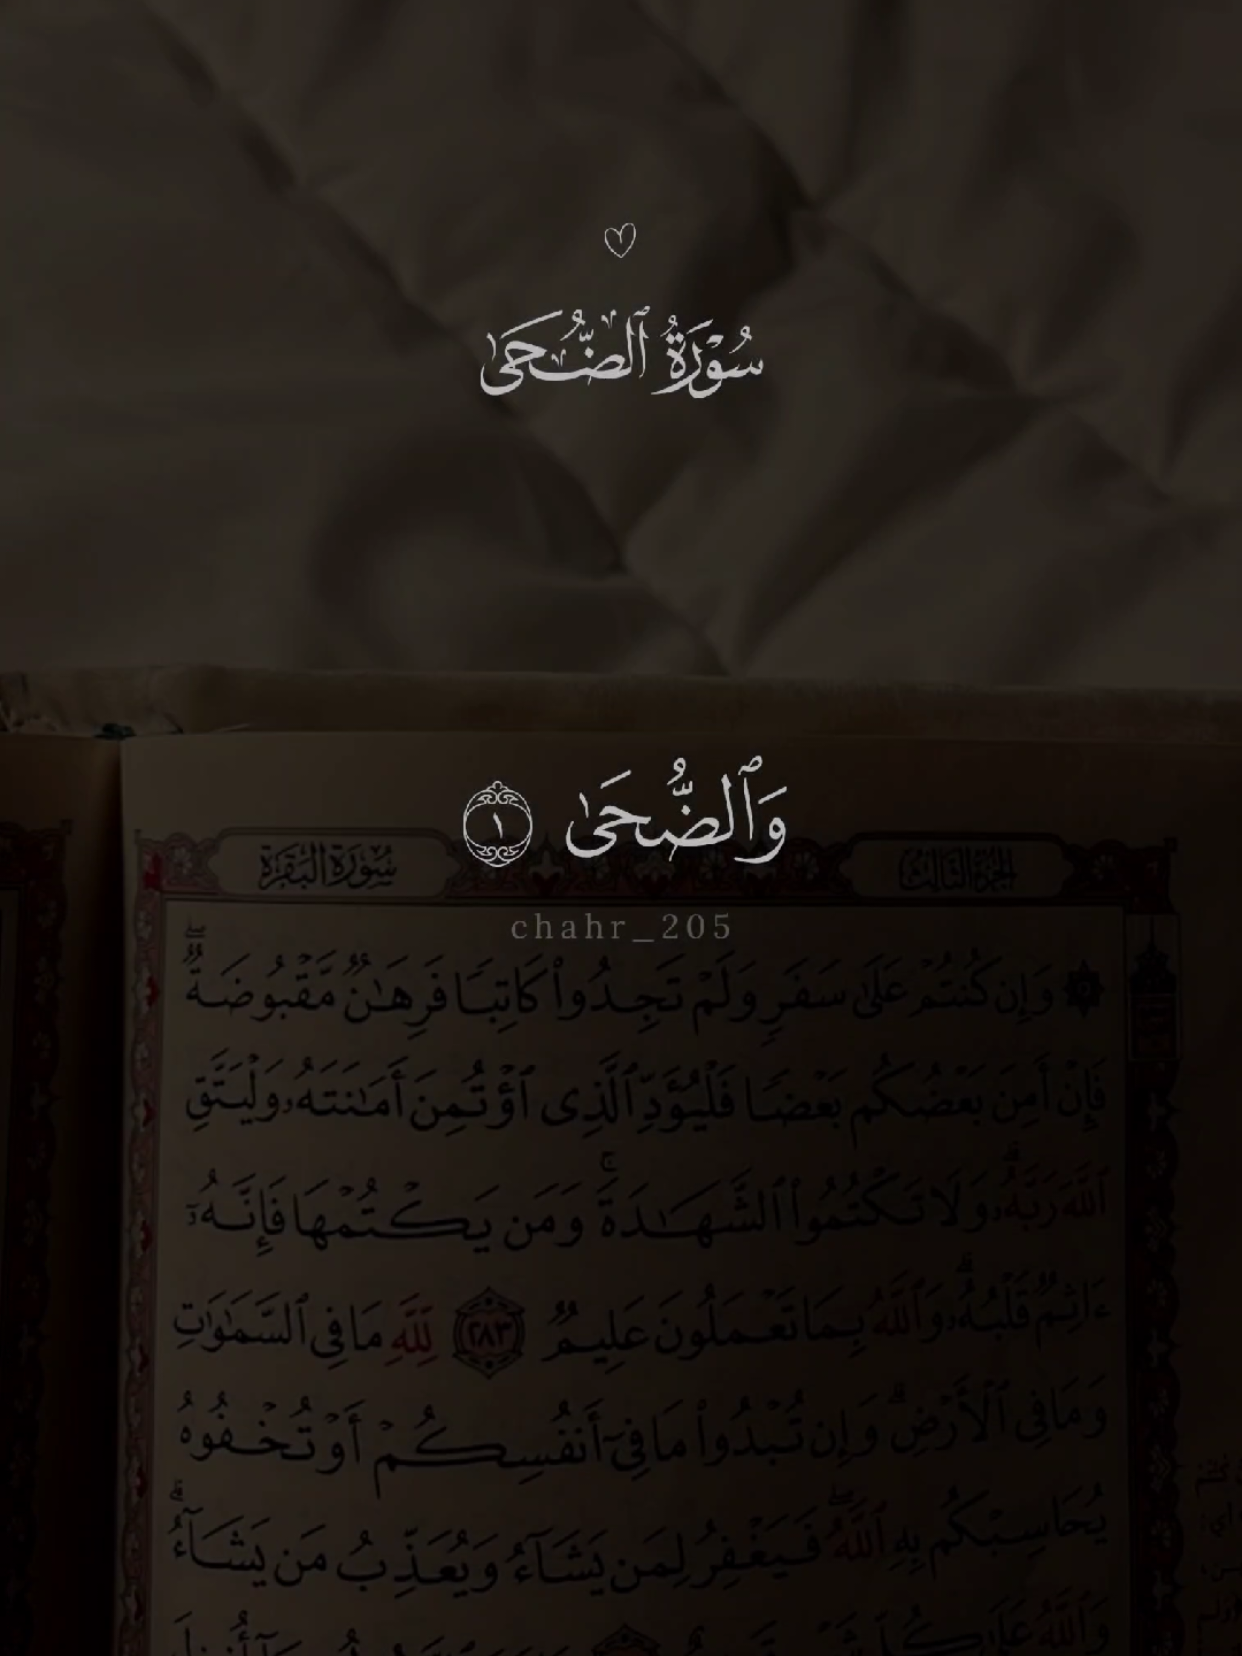 سُوْرَةُ ٱلضُّحَىٰ
وَٱلضُّحَىٰ ١
chahr_205
سُورَةُ البَقَرَة
الجزء الثالث
وَإِن كُنتُمْ عَلَىٰ سَفَرٍ وَلَمْ تَجِدُوا۟ كَاتِبًا فَرِهَـٰنٌ مَّقْبُوضَةٌ ۖ
فَإِنْ أَمِنَ بَعْضُكُم بَعْضًا فَلْيُؤَدِّ ٱلَّذِى ٱؤْتُمِنَ أَمَـٰنَتَهُۥ وَلْيَتَّقِ
ٱللَّهَ رَبَّهُۥ ۗ وَلَا تَكْتُمُوا۟ ٱلشَّهَـٰدَةَ ۚ وَمَن يَكْتُمْهَا فَإِنَّهُۥٓ
ءَاثِمٌ قَلْبُهُۥ ۗ وَٱللَّهُ بِمَا تَعْمَلُونَ عَلِيمٌ ٢٨٣ لِّلَّهِ مَا فِى ٱلسَّمَـٰوَٰتِ
وَمَا فِى ٱلْأَرْضِ ۗ وَإِن تُبْدُوا۟ مَا فِىٓ أَنفُسِكُمْ أَوْ تُخْفُوهُ
يُحَاسِبْكُم بِهِ ٱللَّهُ ۖ فَيَغْفِرُ لِمَن يَشَآءُ وَيُعَذِّبُ مَن يَشَآءُ ۗ
وَٱللَّهُ عَلَىٰ كُلِّ